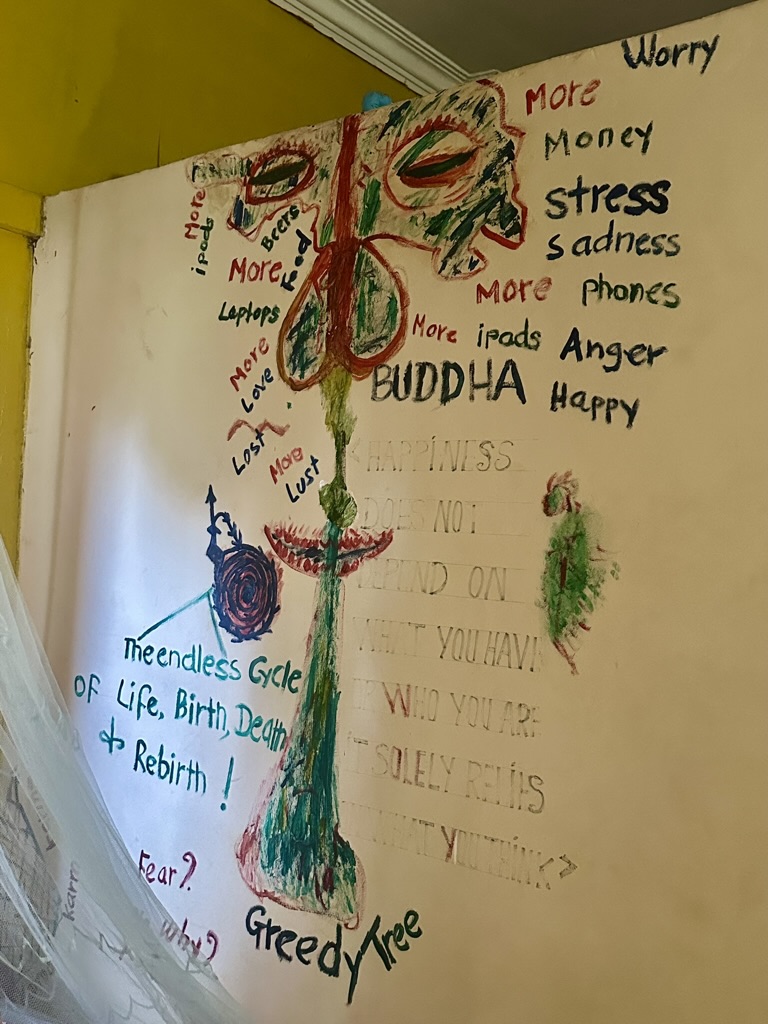 Worry
More
Money
stress
sadness
More phones
More ipads Anger
BUDDHA Happy
More
ipads
Beers
Food
More
Laptops
More
Love
Lost
More
Lust
HAPPINESS
DOES NOT
DEPEND ON
WHAT YOU HAVE
OR WHO YOU ARE
IT SOLELY RELIES
WHAT YOU THINK?
The endless Cycle
OF Life, Birth, Death
& Rebirth !
Fear?
why?
Karm
Greedy Tree